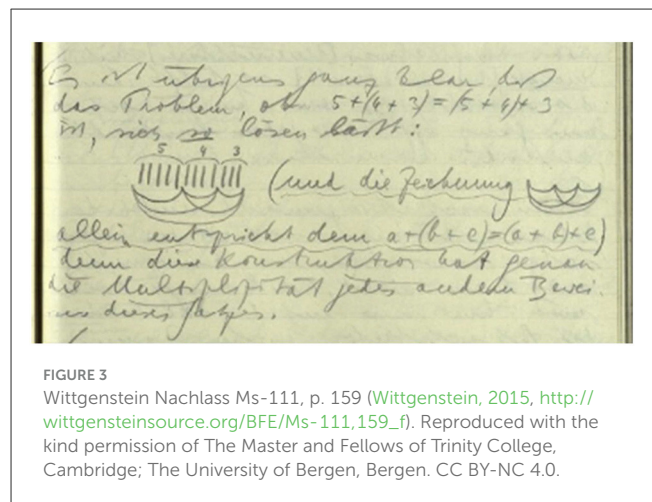 Es ist übrigens ganz klar, daß
das Problem, ob 5+(4+3)=(5+4)+3
ist, sich so lösen läßt:
5 4 3
(und die Zeichnung
allein entspricht dem a+(b+c)=(a+b)+c)
denn diese Konstruktion hat genau
die Multiplizität jedes andern Bewei-
ses dieses Satzes.
FIGURE 3
Wittgenstein Nachlass Ms-111, p. 159 (Wittgenstein, 2015, http://
wittgensteinsource.org/BFE/Ms-111,159_f). Reproduced with the
kind permission of The Master and Fellows of Trinity College,
Cambridge; The University of Bergen, Bergen. CC BY-NC 4.0.